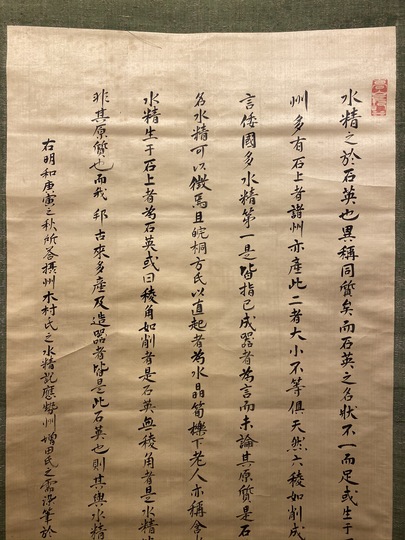 水精之於石英也異稱同質矣而石英之名狀不一而足或生于
州多有石上者諸州亦產此二者大小不等俱天然六稜如削成
言倭國多水精第一是皆指已成器者為言而未論其原質是石
名水精可以徵焉且皖桐方氏以直起者為水晶筍櫟下老人亦稱含水
水精生于石上者為石英或曰稜角如削者是石英無稜角者是水精
非其原質也而我邦古來多產及造器者皆是此石英也則其與水精
右明和庚寅之秋所答摂州木村氏之水精說應 州增田氏之需染筆於